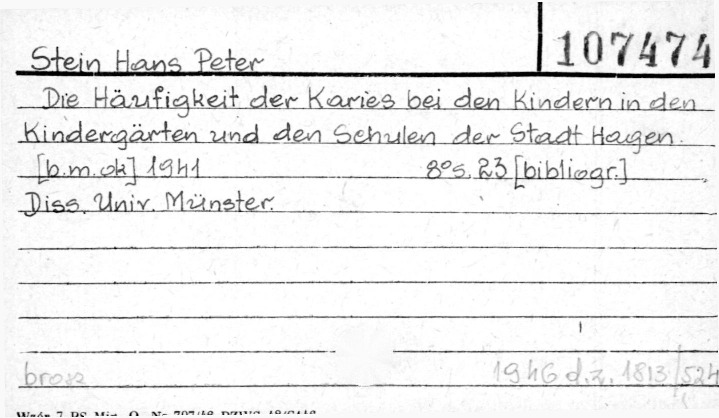 107474
Stein Hans Peter
Die Häufigkeit der Karies bei den Kindern in den
Kindergärten und den Schulen der Stadt Hagen.
[b.m.ok] 1941 8° s. 23 [bibliogr.]
Diss. Univ. Münster.
brosz 1946 d.z. 1813/524
Wzór 7 PS Min. O. Nr